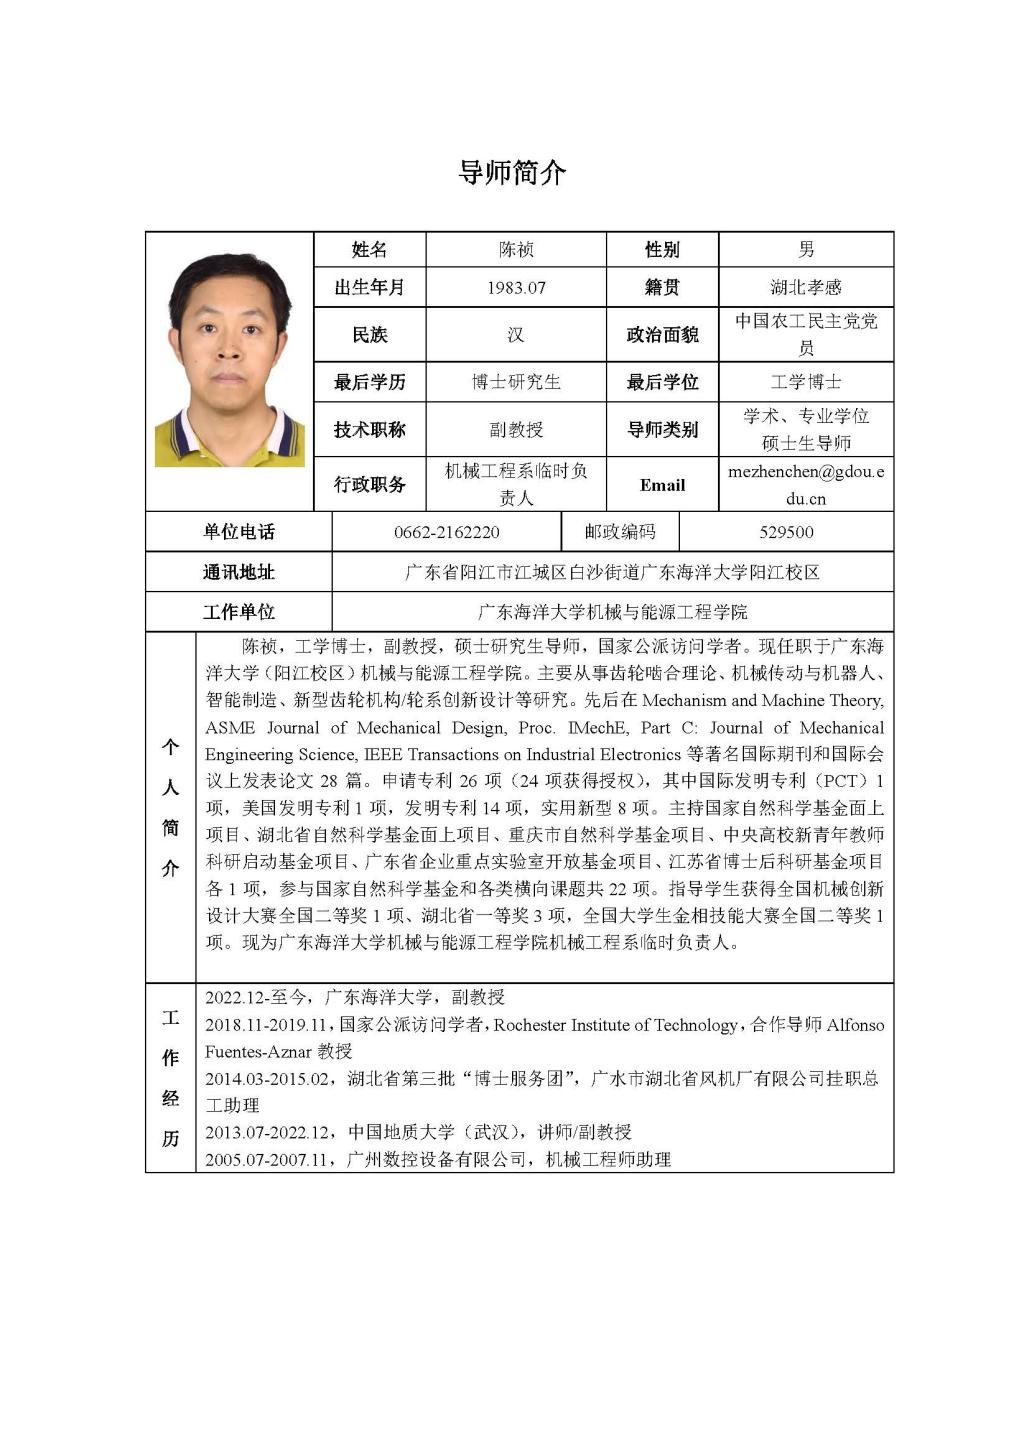 导师简介
姓名 陈祯 性别 男
出生年月 1983.07 籍贯 湖北孝感
民族 汉 政治面貌 中国农工民主党党
员
最后学历 博士研究生 最后学位 工学博士
技术职称 副教授 导师类别 学术、专业学位
硕士生导师
行政职务 机械工程系临时负
责人 Email mezhenchen@gdou.e
du.cn
单位电话 0662-2162220 邮政编码 529500
通讯地址 广东省阳江市江城区白沙街道广东海洋大学阳江校区
工作单位 广东海洋大学机械与能源工程学院
个人简介
陈祯，工学博士，副教授，硕士研究生导师，国家公派访问学者。现任职于广东海
洋大学（阳江校区）机械与能源工程学院。主要从事齿轮啮合理论、机械传动与机器人、
智能制造、新型齿轮机构/轮系创新设计等研究。先后在 Mechanism and Machine Theory,
ASME Journal of Mechanical Design, Proc. IMechE, Part C: Journal of Mechanical
Engineering Science, IEEE Transactions on Industrial Electronics 等著名国际期刊和国际会
议上发表论文 28 篇。申请专利 26 项（24 项获得授权），其中国际发明专利（PCT）1
项，美国发明专利 1 项，发明专利 14 项，实用新型 8 项。主持国家自然科学基金面上
项目、湖北省自然科学基金面上项目、重庆市自然科学基金项目、中央高校新青年教师
科研启动基金项目、广东省企业重点实验室开放基金项目、江苏省博士后科研基金项目
各 1 项，参与国家自然科学基金和各类横向课题共 22 项。指导学生获得全国机械创新
设计大赛全国二等奖 1 项、湖北省一等奖 3 项，全国大学生金相技能大赛全国二等奖 1
项。现为广东海洋大学机械与能源工程学院机械工程系临时负责人。
工作经历
2022.12-至今，广东海洋大学，副教授
2018.11-2019.11，国家公派访问学者，Rochester Institute of Technology，合作导师 Alfonso
Fuentes-Aznar 教授
2014.03-2015.02，湖北省第三批“博士服务团”，广水市湖北省风机厂有限公司挂职总
工助理
2013.07-2022.12，中国地质大学（武汉），讲师/副教授
2005.07-2007.11，广州数控设备有限公司，机械工程师助理